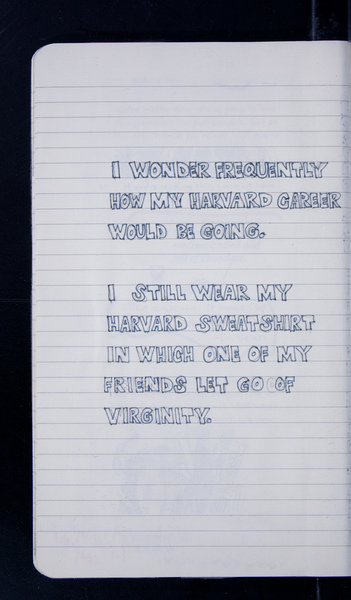 I WONDER FREQUENTLY
HOW MY HARVARD CAREER
WOULD BE GOING.
I STILL WEAR MY
HARVARD SWEATSHIRT
IN WHICH ONE OF MY
FRIENDS LET GO OF
VIRGINITY.